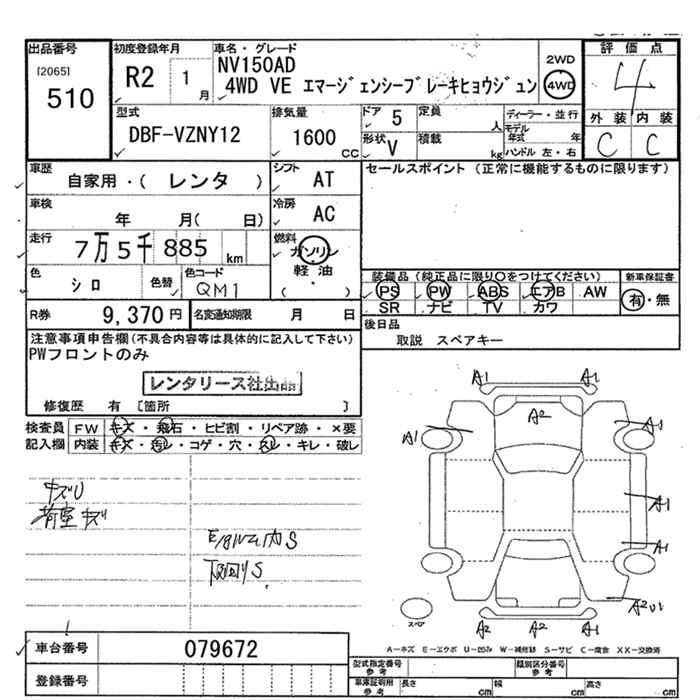 出品番号
[2065]
510
初度登録年月
R2 1月
車名・グレード
NV150AD
4WD VE エマージェンシーブレーキヒョウジュン
2WD
4WD
評価点
4
外装 内装
C C
型式
DBF-VZNY12
排気量
1600 CC
ドア 5
定員 人
形状 V
積載 kg
ディーラー・並行
モデル年式 年
ハンドル 左・右
車歴
自家用・( レンタ )
シフト AT
セールスポイント (正常に機能するものに限ります)
車検 年 月( 日)
冷房 AC
走行 7万5千885km
燃料 ガソリン
軽油
( )
色 シロ 色替
色コード QM1
装備品 (純正品に限り〇をつけてください)
PS PW ABS エアB AW
SR ナビ TV カワ
新車保証書
有・無
R券 9,370円
名変通知期限 月 日
後日品
取説 スペアキー
注意事項申告欄(不具合内容等は具体的に記入して下さい)
PWフロントのみ
レンタリース社出品
修復歴 有 [箇所 ]
検査員記入欄
FW キズ・飛石・ヒビ割・リペア跡・×要
内装 キズ・汚レ・コゲ・穴・スレ・キレ・破レ
キズU
荷室キズ
下回りS
A1 A1
A2
A1
A1
A1
A2
A2 A2
スペア
A-キズ E-エクボ U-凹み W-補修跡 S-サビ C-腐食 XX-交換済
車台番号 079672
登録番号
型式指定番号 参考
類別区分番号 参考
車庫証明用 参考
長さ cm 幅 cm 高さ cm